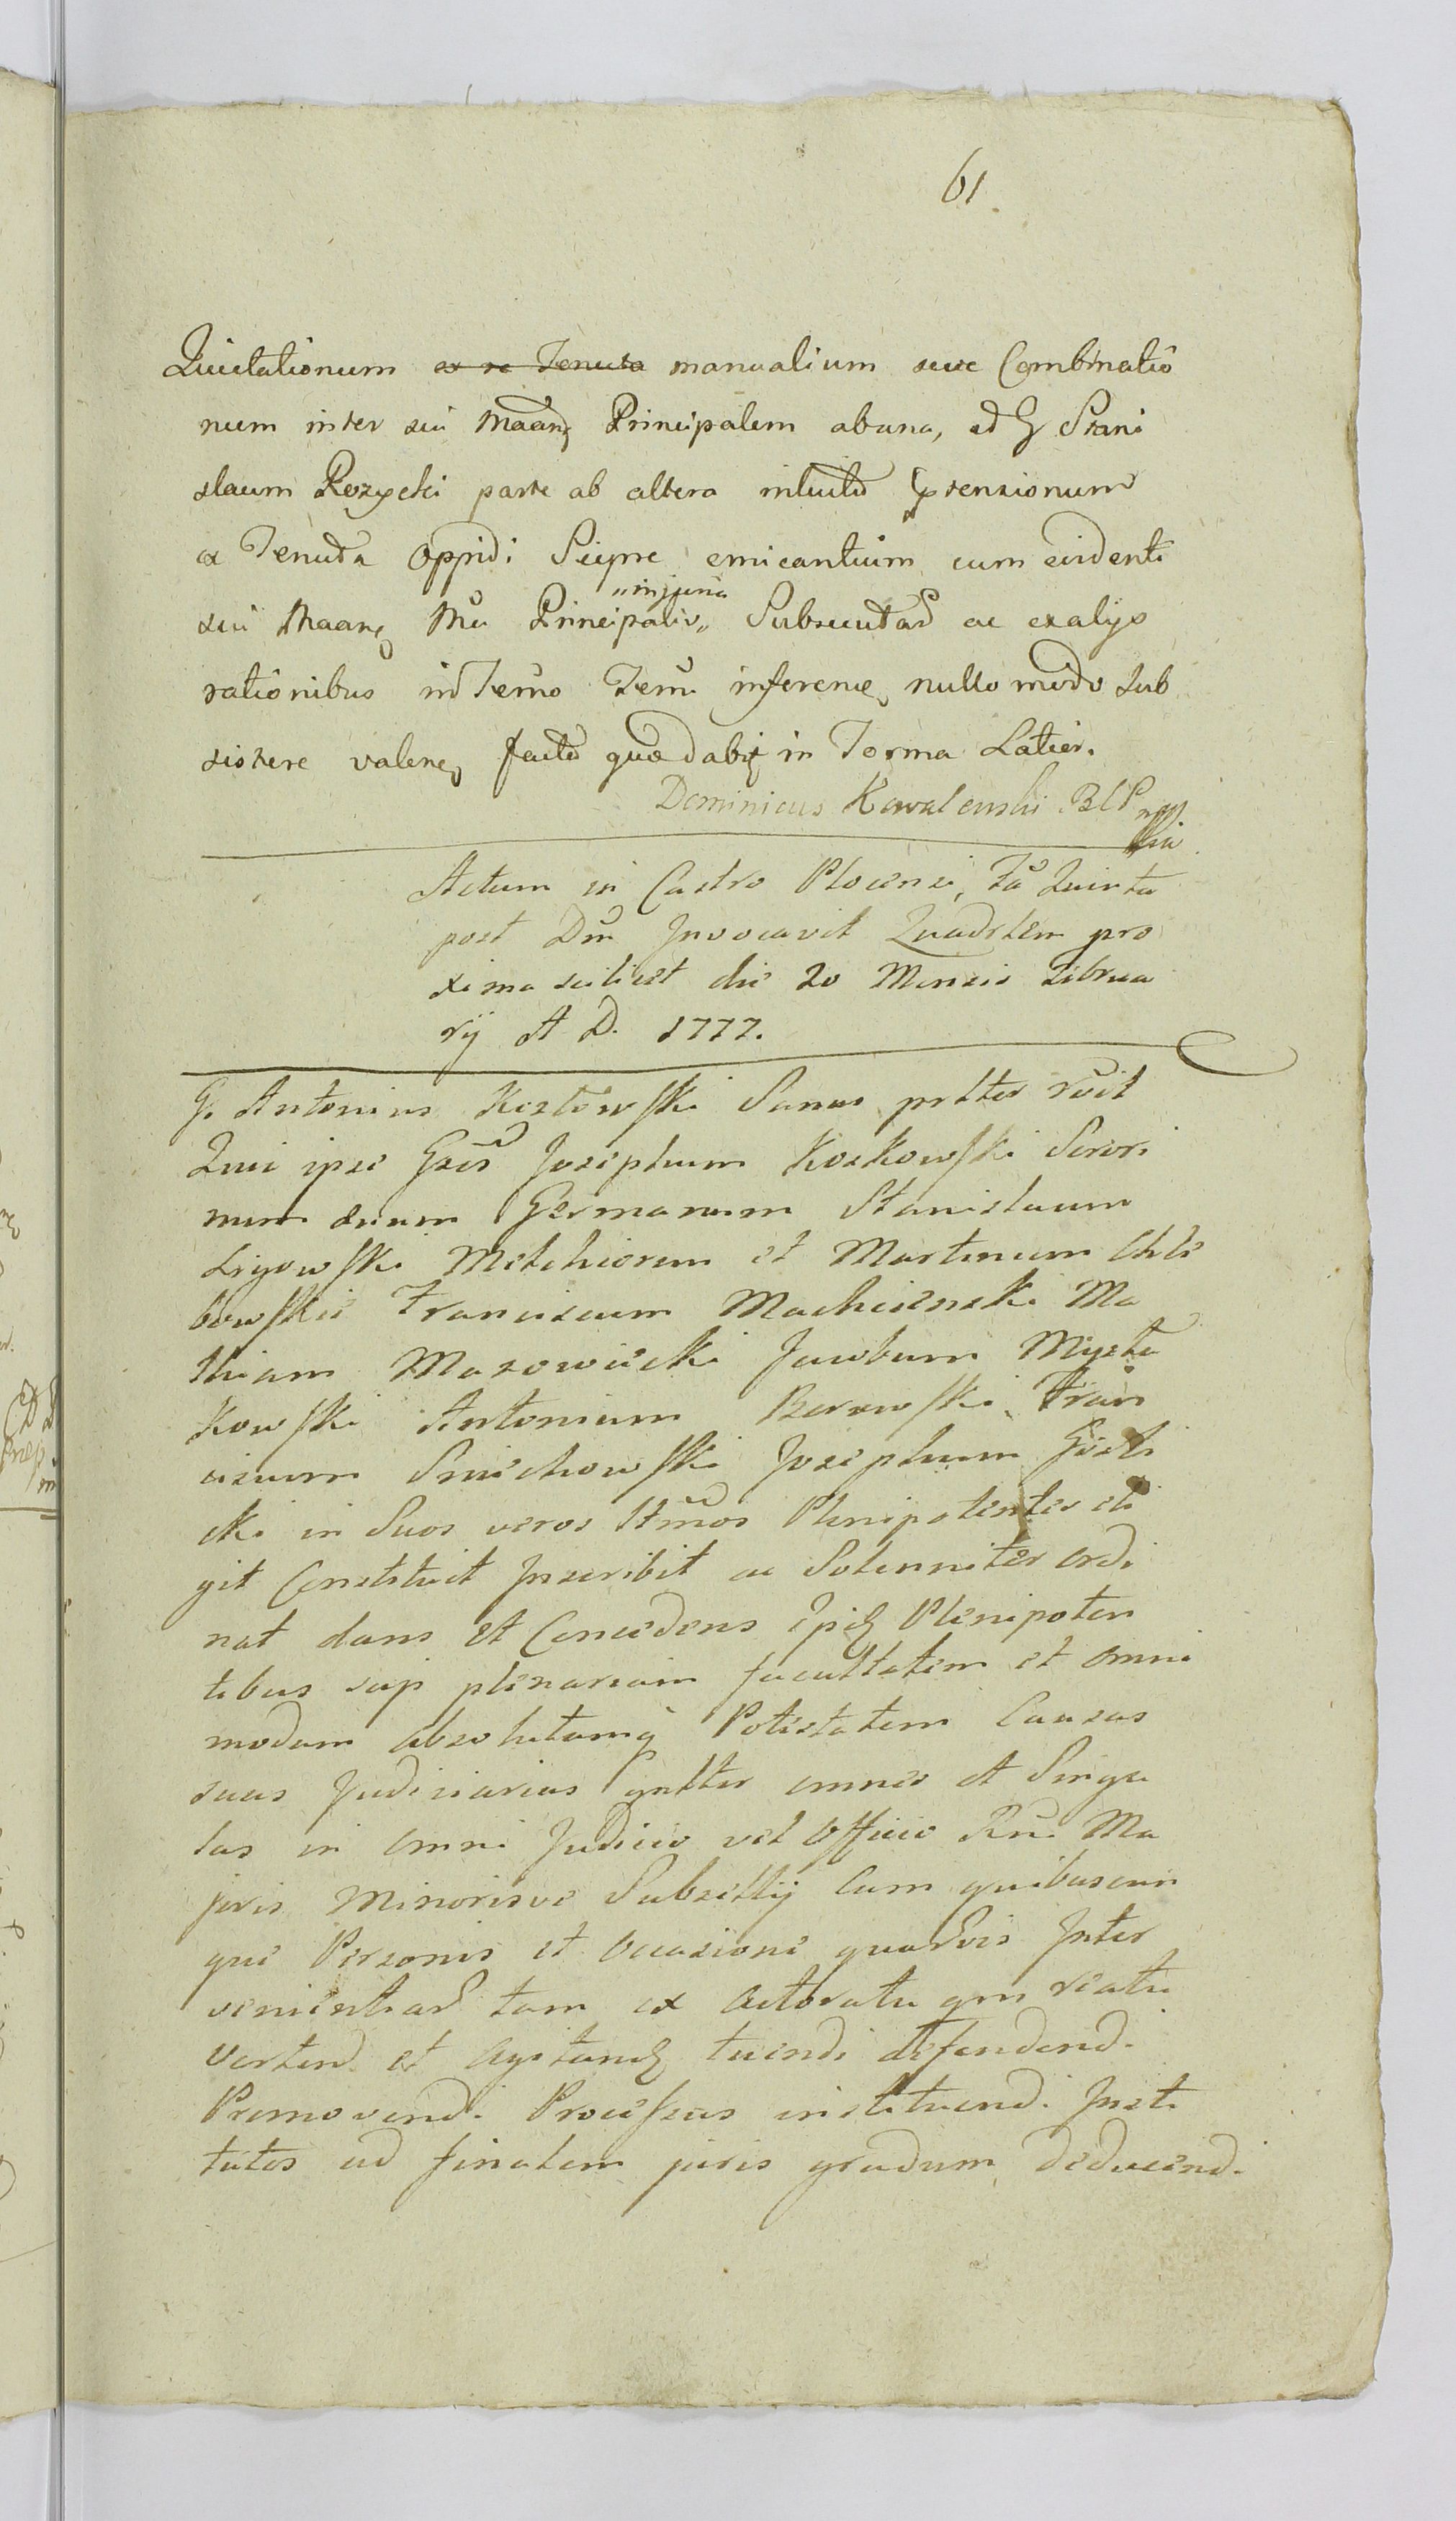 61
Quietationum ex re Tenuta manualium seu Combinatio
num inter sui Maang Principalem ab una, ed G Stani
slaum Rozycki parte ab altera intuitu Prensionum
ex Tenuta Oppidi Sieprc emicantium cum evidenti
sui Maang Mu Principalis „injuria„ Subsecutar ac ex alijs
rationibus in Termo Term inferene nullo modo Sub
sistere valene facto quæ dabit in Forma Latior.
Dominicus Kowalewski BCP mpp
Actum in Castro Plocensi, fa Quinta
post Dm Invocavit Quadrlem pro
xima scilicet die 20 Mensis Februa
rij A D. 1777.
G. Antonius Kozłowski Sanus pntter rcit
Quia ipse Gsos Josephum Koskowski Sorori
num suum Germanum Stanislaum
Ligowski Melchiorem et Martinum Chle
bowskie Franciscum Machcienski Ma
thiam Mazowiecki Jacobum Myszta
Kowski Antonium Borowski Fran
ciscum Smiechowski Josephum Gości
cki in Suos veros Ltmos Plenipotentes eli
git Constituit Inscribit ac Solenniter ordi
nat dans et Concedens Ipis Plenipoten
tibus sup plenariam facultatem et omni
modam absolutamq Potestatem Causas
suas Judiciarias gnlter omnes et Singu
las in omni Judicio vel Officio Rni Ma
joris Minorisve Subsellij Cum quibuscun
que Personis et occasione quarumvis Inter
venientiar tam ex Actoratu qm reatu
Vertend et Agitand tuendi defendend.
Promovendi Processus instituendi Insti
tutos ad finalem juris gradum deducend.